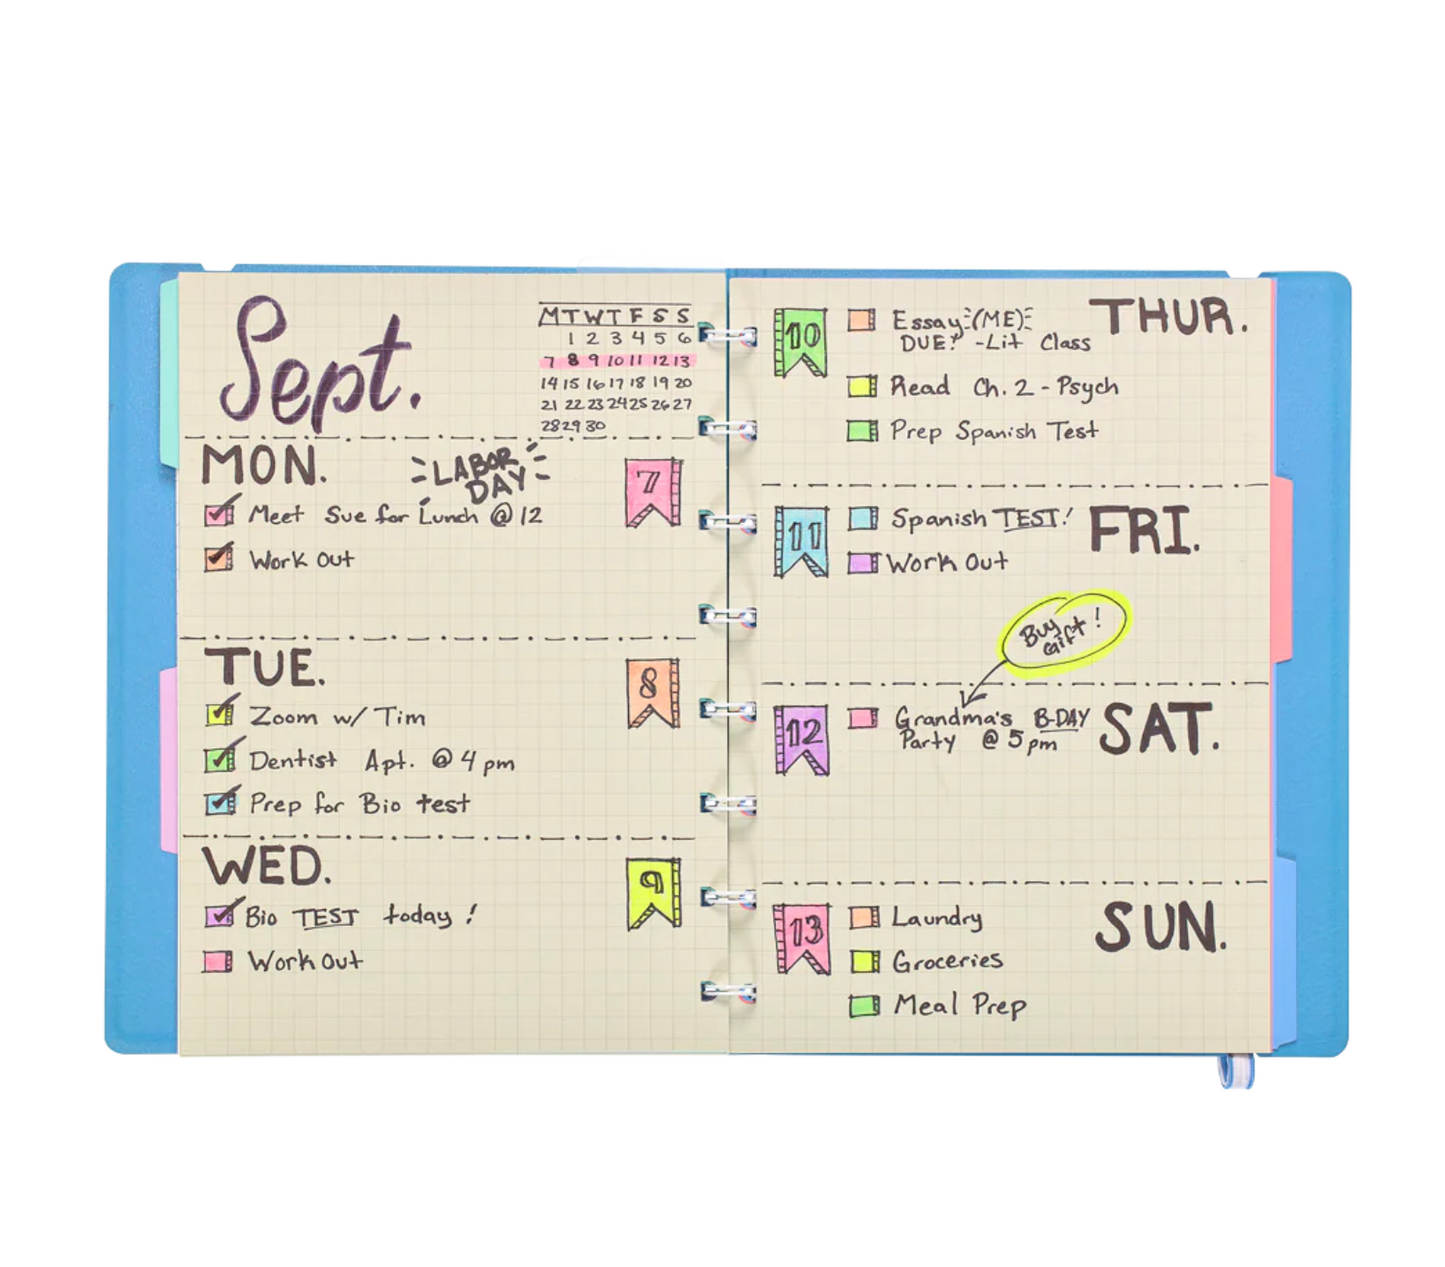 Sept.
M T W T F S S
1 2 3 4 5 6
7 8 9 10 11 12 13
14 15 16 17 18 19 20
21 22 23 24 25 26 27
28 29 30
MON.
LABOR
DAY
7
Meet Sue for Lunch @ 12
Work Out
TUE.
8
Zoom w/ Tim
Dentist Apt. @ 4 pm
Prep for Bio test
WED.
9
Bio TEST today!
Work Out
THUR.
10
Essay (ME)
DUE! -Lit Class
Read Ch. 2 - Psych
Prep Spanish Test
FRI.
11
Spanish TEST!
Work Out
Buy
Gift!
SAT.
12
Grandma's B-DAY
Party @ 5 pm
SUN.
13
Laundry
Groceries
Meal Prep